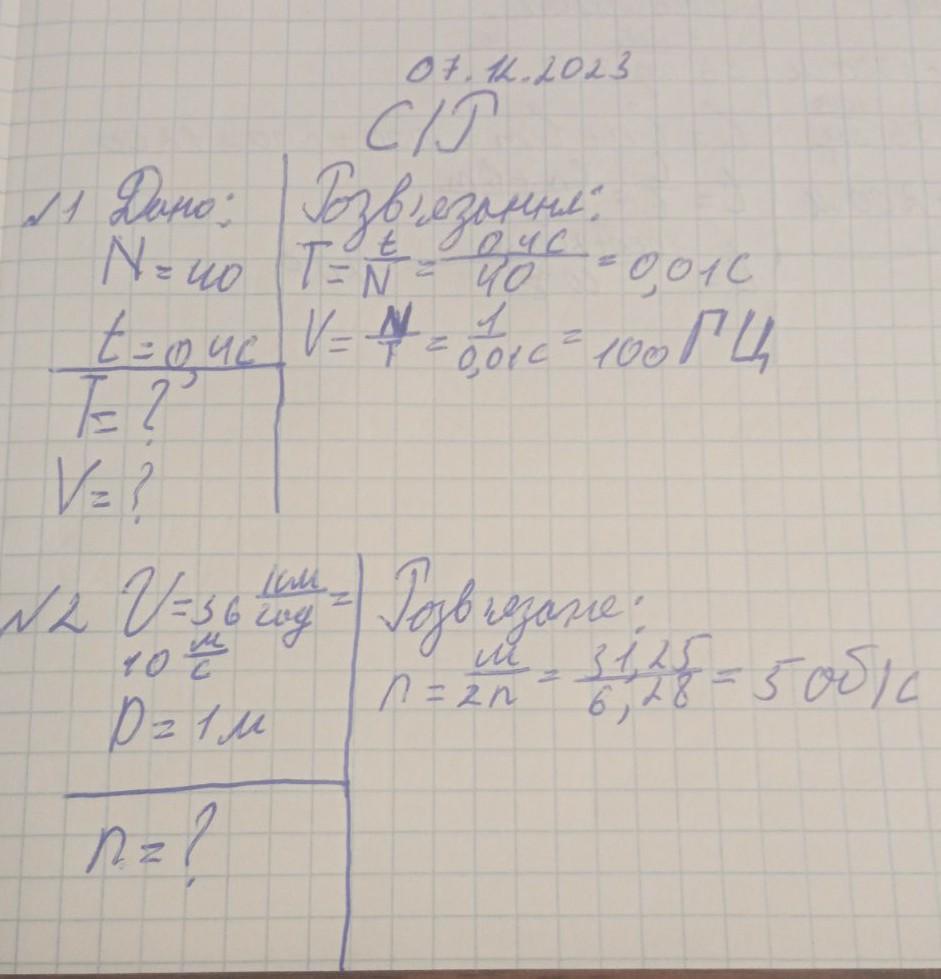 07.12.2023
С/Р
№1 Дано:
N = 40
t = 0,4с
T = ?
V = ?
Розв'язання:
T = t/N = 0,4с/40 = 0,01с
V = N/T = 1/0,01с = 100 ГЦ
№2 V = 36 км/год =
10 м/с
D = 1м
n = ?
Розв'язане:
n = м/2п = 31,25/6,28 = 5 об/с